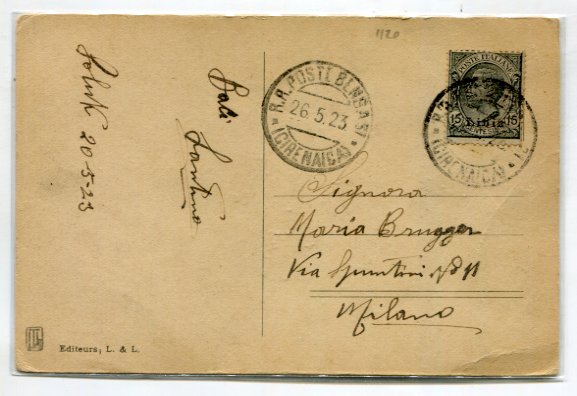 1120
Soluk 20-5-23
Baci
Santino
R.R. POSTE BENGASI
26.5.23
(CIRENAICA)
POSTE ITALIANE
15 15
Libia
(CIRENAICA)
Signora
Maria Brugger
Via Spuntini No 11
Milano
Editeurs; L. & L.